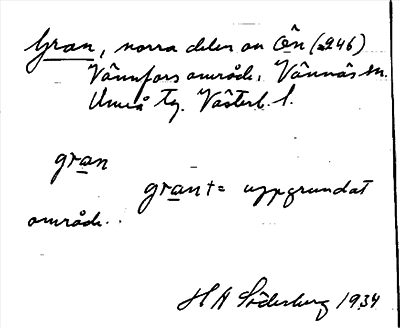 Gran, norra delen av Ön (246)
Vännfors område, Vännäs sn.
Umeå tg. Västerb. l.
gran
gran t = uppgrundat
område.
H A Söderberg 1934